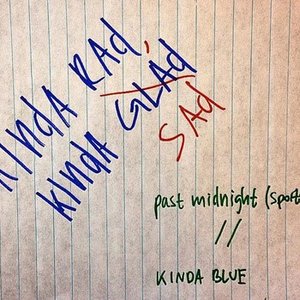 KINDA RAD,
KINDA GLAD
SAD
past midnight (spot
//
KINDA BLUE